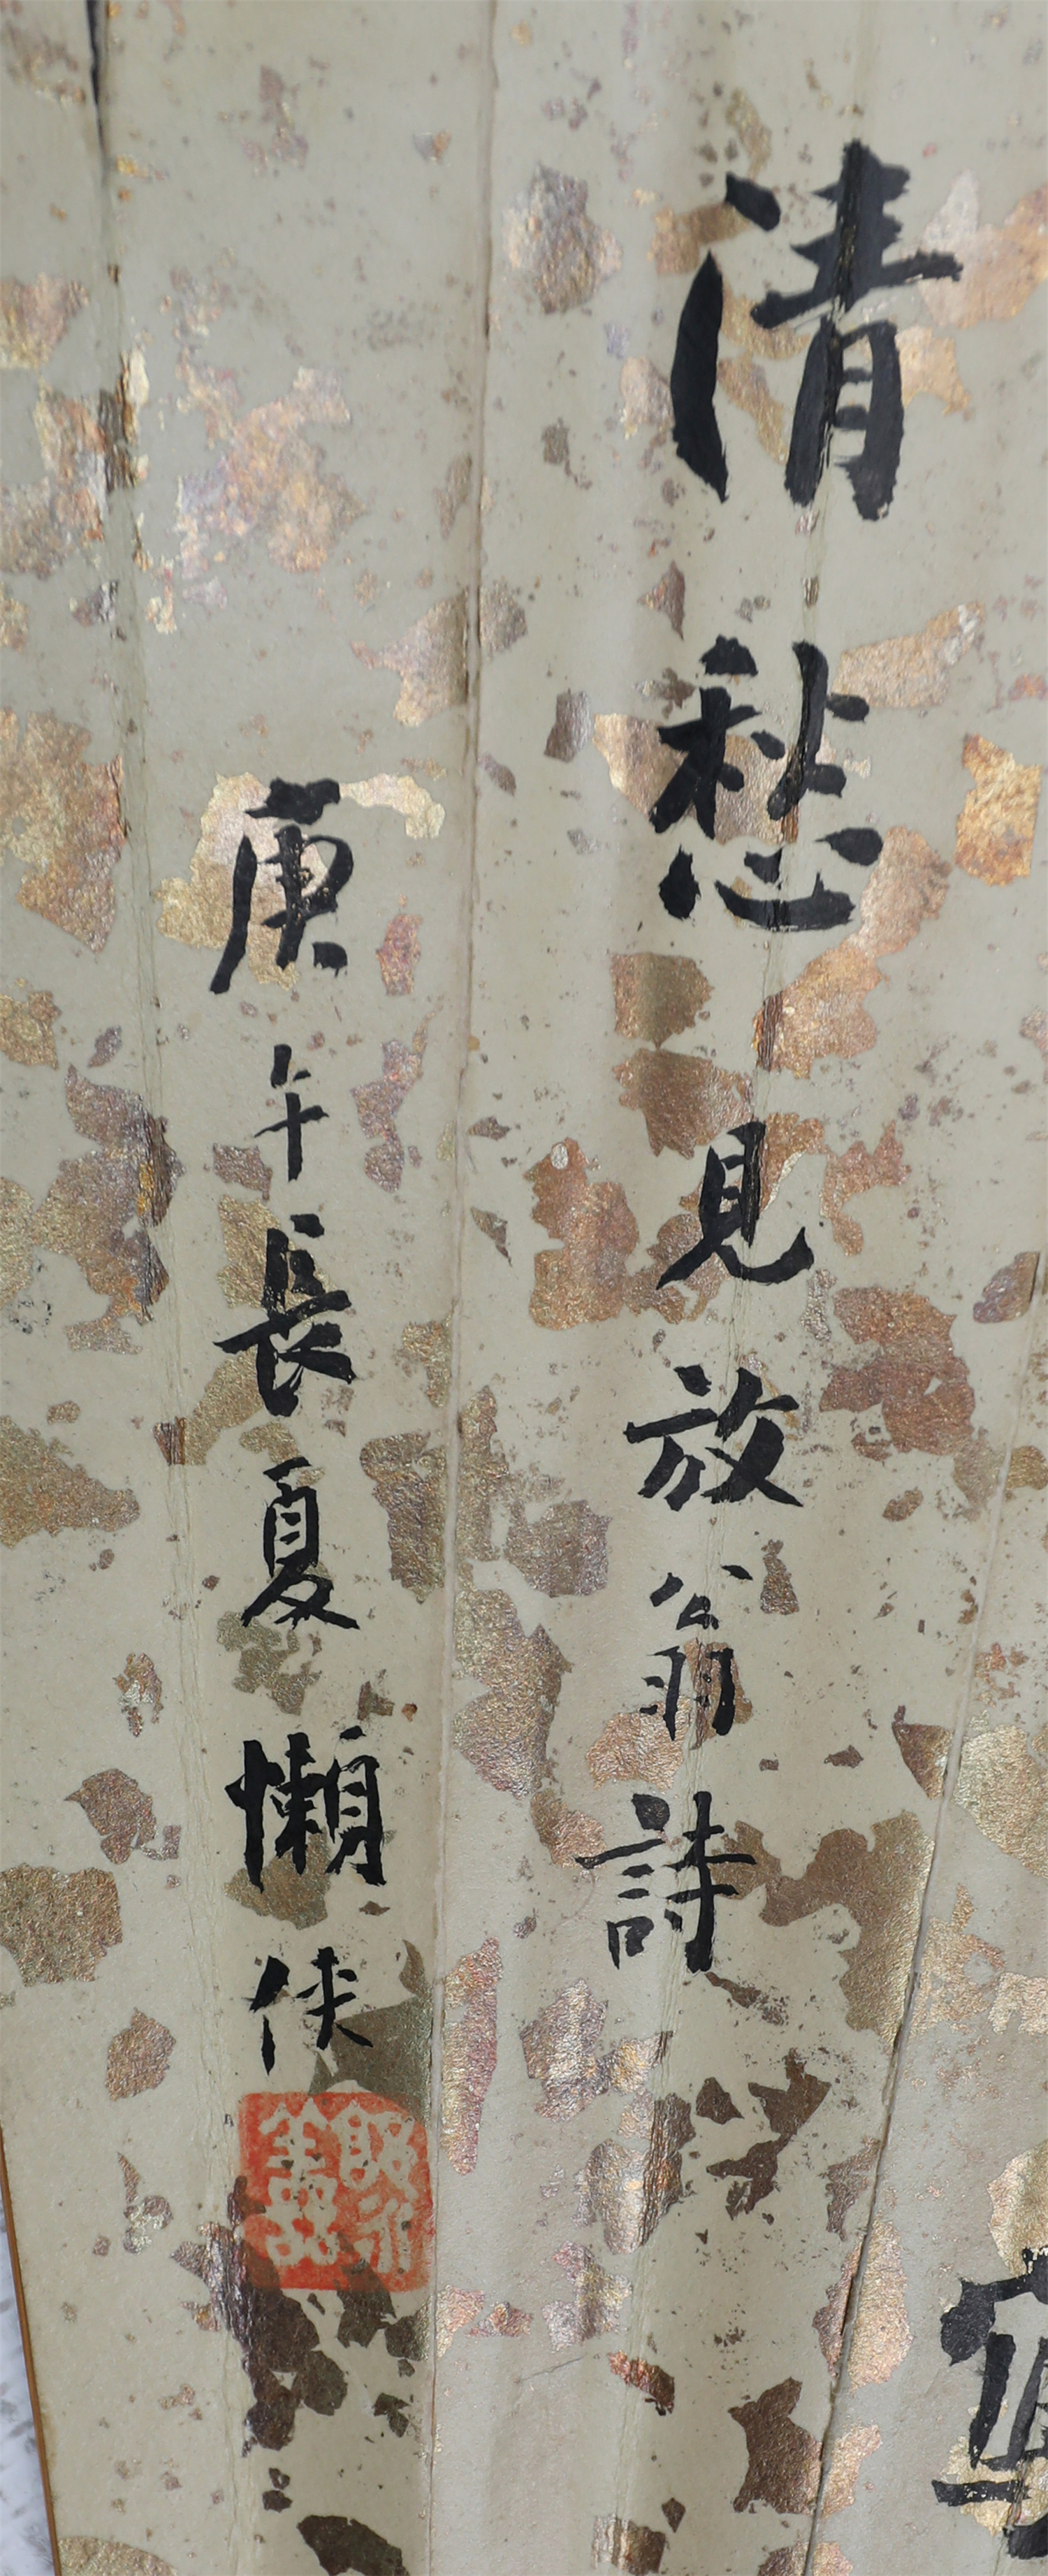 清愁 見放翁詩
庚午長夏懶俠